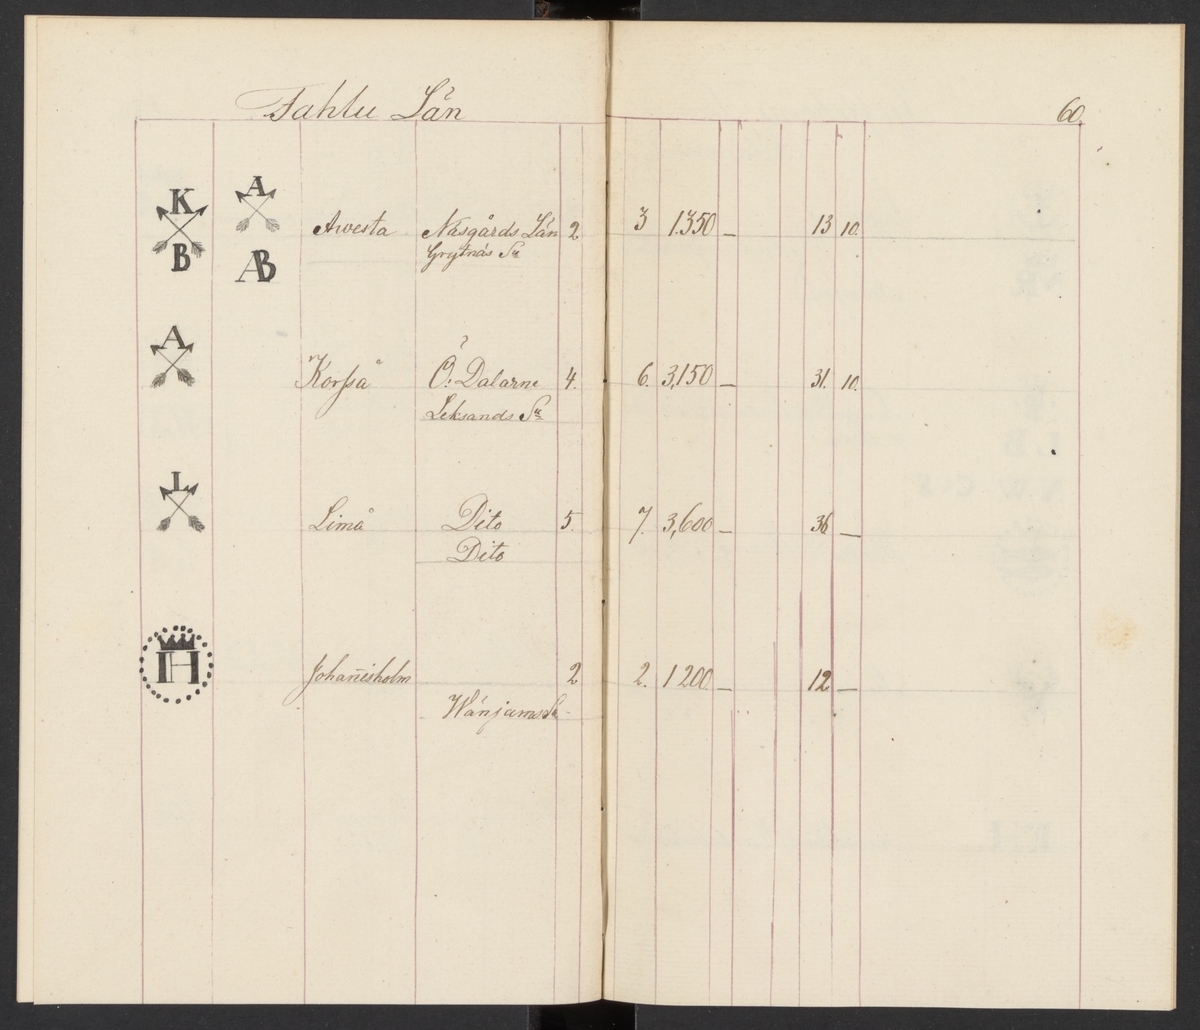 Fahlu Län
60.
K A
B AB
Awesta Näsgårds Län 2 3 1.350 — 13 10.
Grytnäs Sn
A
Korsså Ö: Dalarne 4. 6. 3,150 — 31. 10.
Leksands Sn
L
Limå Dito 5. 7. 3,600 — 36 —
Dito
H
Johanisholm 2 2. 1 200 — 12 —
Wänjams Sn